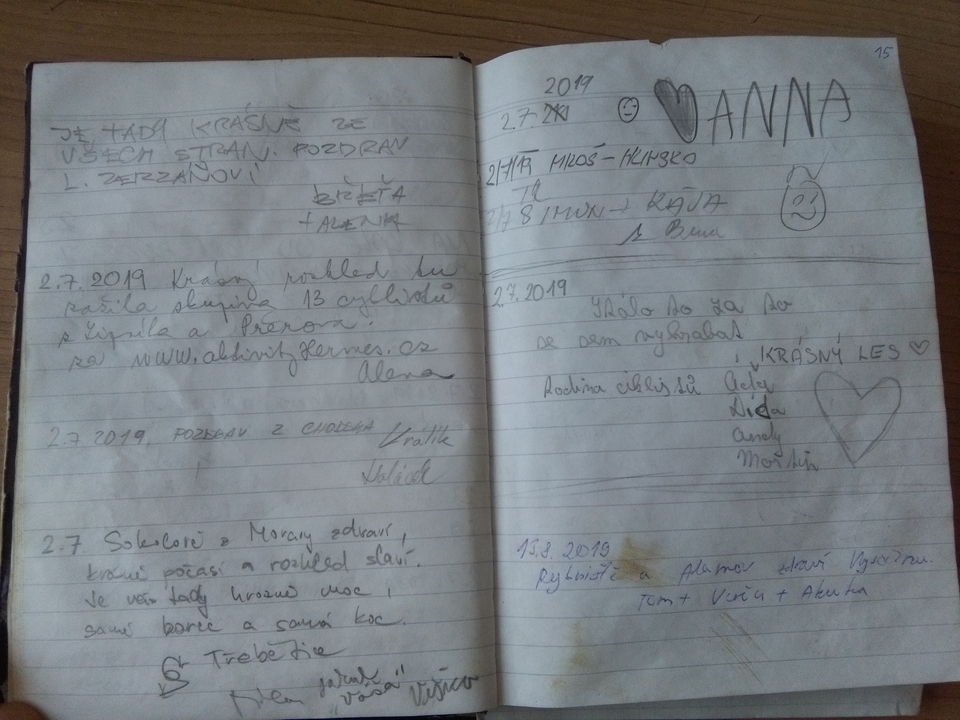 JE TADY KRÁSNĚ ZE
VŠECH STRAN. POZDRAV
L. ZERZAŇOVI
BŘEŤA
+ ALENKA
2.7.2019 Krásný rozhled tu
zažila skupina 13 cyklistů
z Lipníka a Přerova.
za www.aktivityHermes.cz
Alena
2.7 2019, POZDRAV Z CHOCEŇA Králík
2.7 Sokolové z Moravy zdraví,
krásné počasí a rozhled slaví.
Je vás tady hrozně moc,
samé borec a samá koc.
Třebětice
Milan
15
2019
2.7. ANNA
2/7/19 MILOŠ - HLINSKO
2/7 ŠIMON → KÁJA
z Brna
2.7.2019
Stálo to za to
se sem vyhrabat
KRÁSNÝ LES ♡
Rodina ciklistů
Dída
Andy
Martin
15.8. 2019
Rybniště a Adamov zdraví Vysočinu.
Tom + Verča +